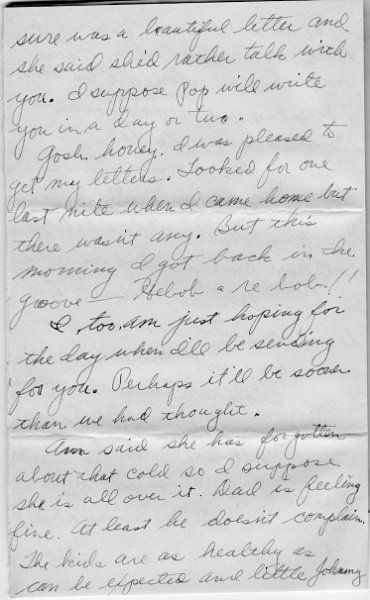 sure was a beautiful letter and
she said she'd rather talk with
you. I suppose Pop will write
you in a day or two.
Gosh, honey. I was pleased to
get my letters. Looked for one
last nite when I came home but
there wasn't any. But this
morning I got back in the
groove — Hebob a re bob!!
I, too, am just hoping for
the day when I'll be sending
for you. Perhaps it'll be sooner
than we had thought.
Ann said she has forgotten
about that cold so I suppose
she is all over it. Dad is feeling
fine. At least he doesn't complain.
The kids are as healthy as
can be expected and little Johnny